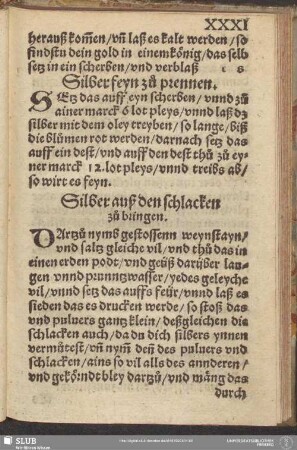 XXXI
herauß kom̃en/ vñ laß es kalt werden/ so
findstu dein gold in einem könig/ das selb
setz in ein scherben/ vnd verblaß i s
Silber feyn zů prennen.
SEtz das auff eyn scherben/ vnnd zů
ainer marck 6 lot pleys/ vnnd laß dz
silber mit dem oley treyben/ so lange/ biß
die blůmen rot werden/ darnach setz das
auff ein dest/ vnd auff den dest thů zů ey-
ner marck 12. lot pleys/ vnnd treibs ab/
so wirt es feyn.
Silber auß den schlacken
zů bringen.
DArtzů nymb gestossenn weynstayn/
vnd saltz gleiche vil/ vnd thů das in
einen erden podt/ vnd geüß darüber lau-
gen vnnd prunntzwasser/ yedes geleyche
vil/ vnnd setz das auffs feür/ vnnd laß es
sieden das es drucken werde/ so stoß das
vnd puluers gantz klein/ deßgleichen die
schlacken auch/ da du dich silbers ynnen
vermůtest/ vñ nym̃ deñ des puluers vnd
schlacken/ ains so vil alls des annderen/
vnd geköꝛndt bley dartzů/ vnd mäng das
durch
SLUB
Wir führen Wissen.